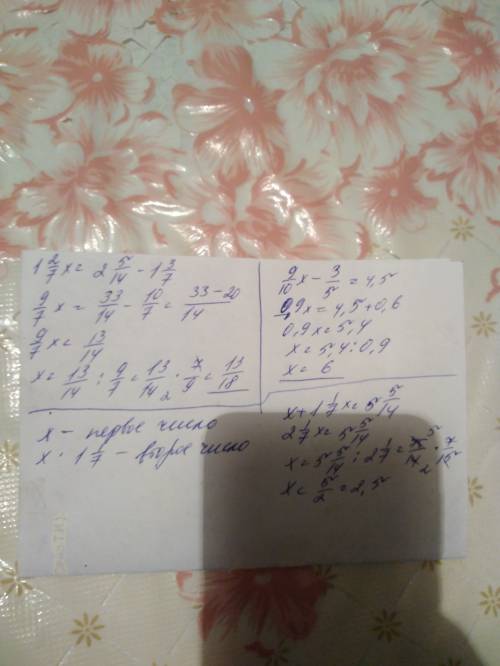 1 2/7 x = 2 5/14 - 1 3/7
9/7 x = 33/14 - 10/7 = 33-20/14
9/7 x = 13/14
x = 13/14 : 9/7 = 13/14 2 · 7/9 = 13/18
9/10 x - 3/5 = 4,5
0,9x = 4,5+0,6
0,9x = 5,4
x = 5,4 : 0,9
x = 6
x - первое число
x · 1 1/7 - второе число
x + 1 1/7 x = 5 5/14
2 1/7 x = 5 5/14
x = 5 5/14 : 2 1/7 =
x = 5/2 = 2,5